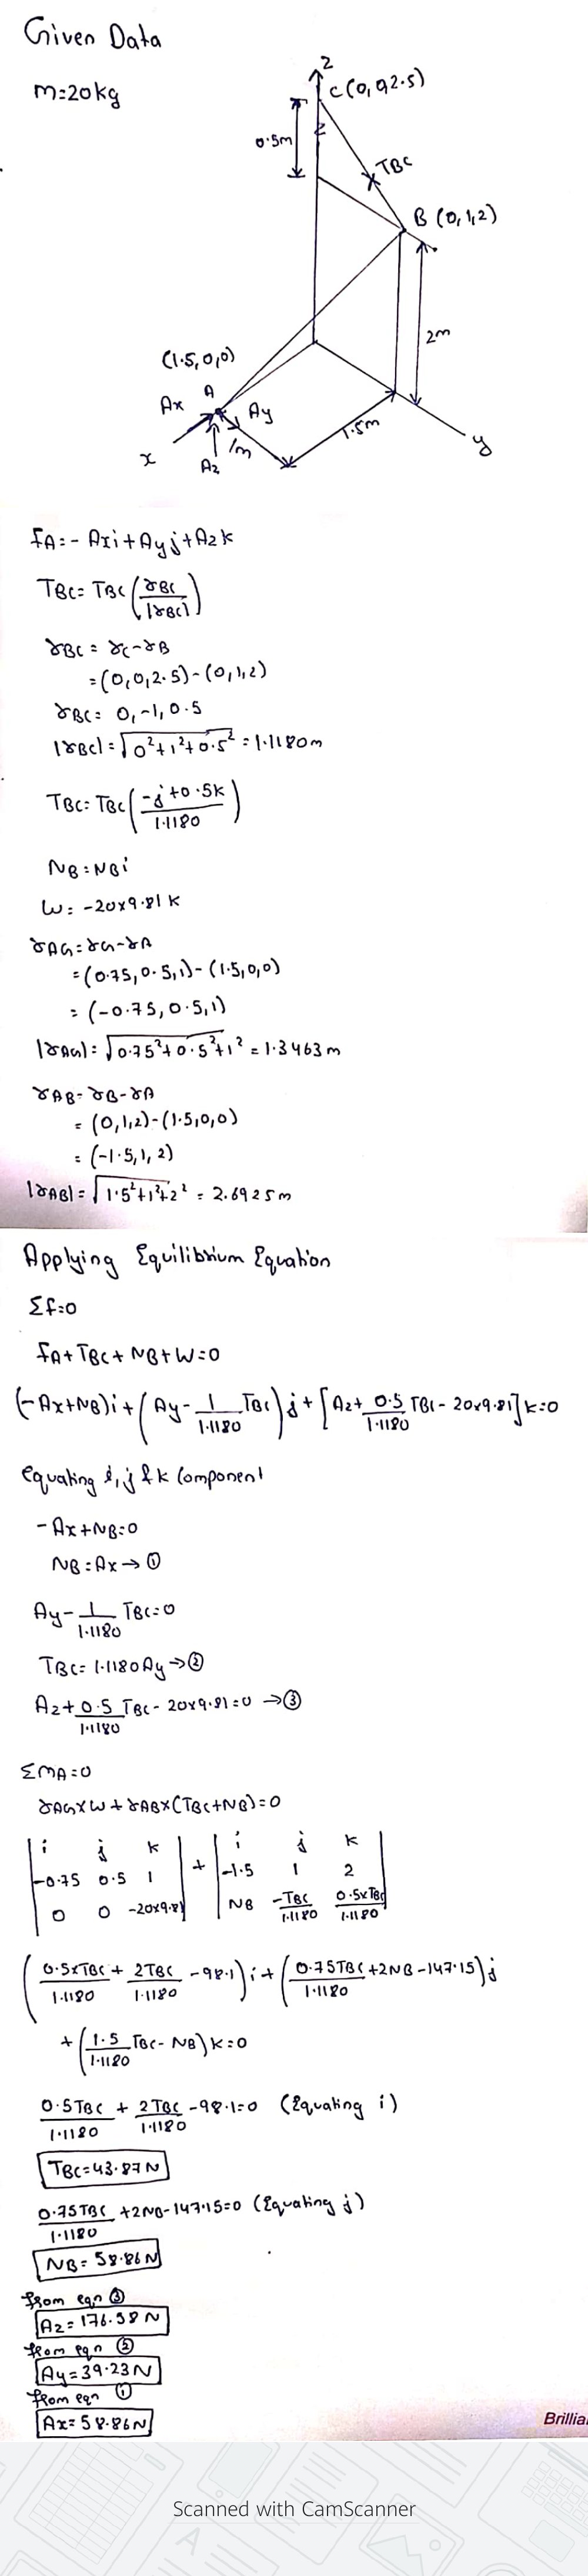 Given Data
m=20kg
z
C(0,0,2.5)
0.5m
TBC
B (0,1,2)
2m
(1.5,0,0)
A
Ax
Ay
x
Az
1m
1.5m
y
FA=- Axi+Ayj+Azk
TBC= TBC (rBC/|rBC|)
rBC = rC-rB
=(0,0,2.5)-(0,1,2)
rBC= 0,-1,0.5
|rBC|=√0²+1²+0.5² =1.1180m
TBC=TBC(-j+0.5k/1.1180)
NB=NBi
W= -20x9.81k
rAG=rG-rA
=(0.75,0.5,1)-(1.5,0,0)
= (-0.75,0.5,1)
|rAG|=√0.75²+0.5²+1² =1.3463m
rAB=rB-rA
= (0,1,2)-(1.5,0,0)
= (-1.5,1,2)
|rAB|=√1.5²+1²+2² = 2.6925m
Applying Equilibrium Equation
Σf=0
FA+TBC+NB+W=0
(-Ax+NB)i+(Ay-1/1.1180 TBC)j+[Az+0.5/1.1180 TBC-20x9.81]k=0
equating i,j & k Component
-Ax+NB=0
NB=Ax→①
Ay-1/1.1180 TBC=0
TBC=1.1180Ay→②
Az+0.5/1.1180 TBC-20x9.81=0 →③
ΣMA=0
rAGxW+rABx(TBC+NB)=0
|i j k| + |i j k|
|-0.75 0.5 1| |-1.5 1 2|
|0 0 -20x9.81| |NB -TBC/1.1180 0.5xTBC/1.1180|
(0.5xTBC/1.1180 + 2TBC/1.1180 -98.1)i+(0.75TBC/1.1180 +2NB-147.15)j
+(1.5/1.1180 TBC-NB)k=0
0.5TBC/1.1180 + 2TBC/1.1180 -98.1=0 (Equating i)
TBC=43.87N
0.75TBC/1.1180 +2NB-147.15=0 (Equating j)
NB=58.86N
from eqn ③
Az=176.58N
from eqn ②
Ay=39.23N
from eqn ①
Ax=58.86N
Brillia
Scanned with CamScanner